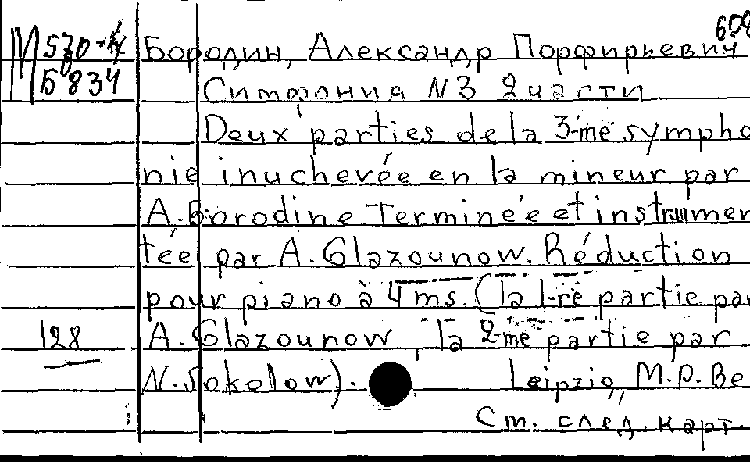 608
М 570-4 Бородин, Александр Порфирьевич
Б 834 Симфония N3 2 части
Deux parties de la 3-me sympho
nie inuchevée en la mineur par
A. Borodine Terminée et instrumen
tée par A. Glazounow. Réduction
pour piano à 4 ms. (la 1-re partie par
128 A. Glazounow, la 2-me partie par
N. Sokolow). Leipzig, M.P. Be
Ст. след. карт.